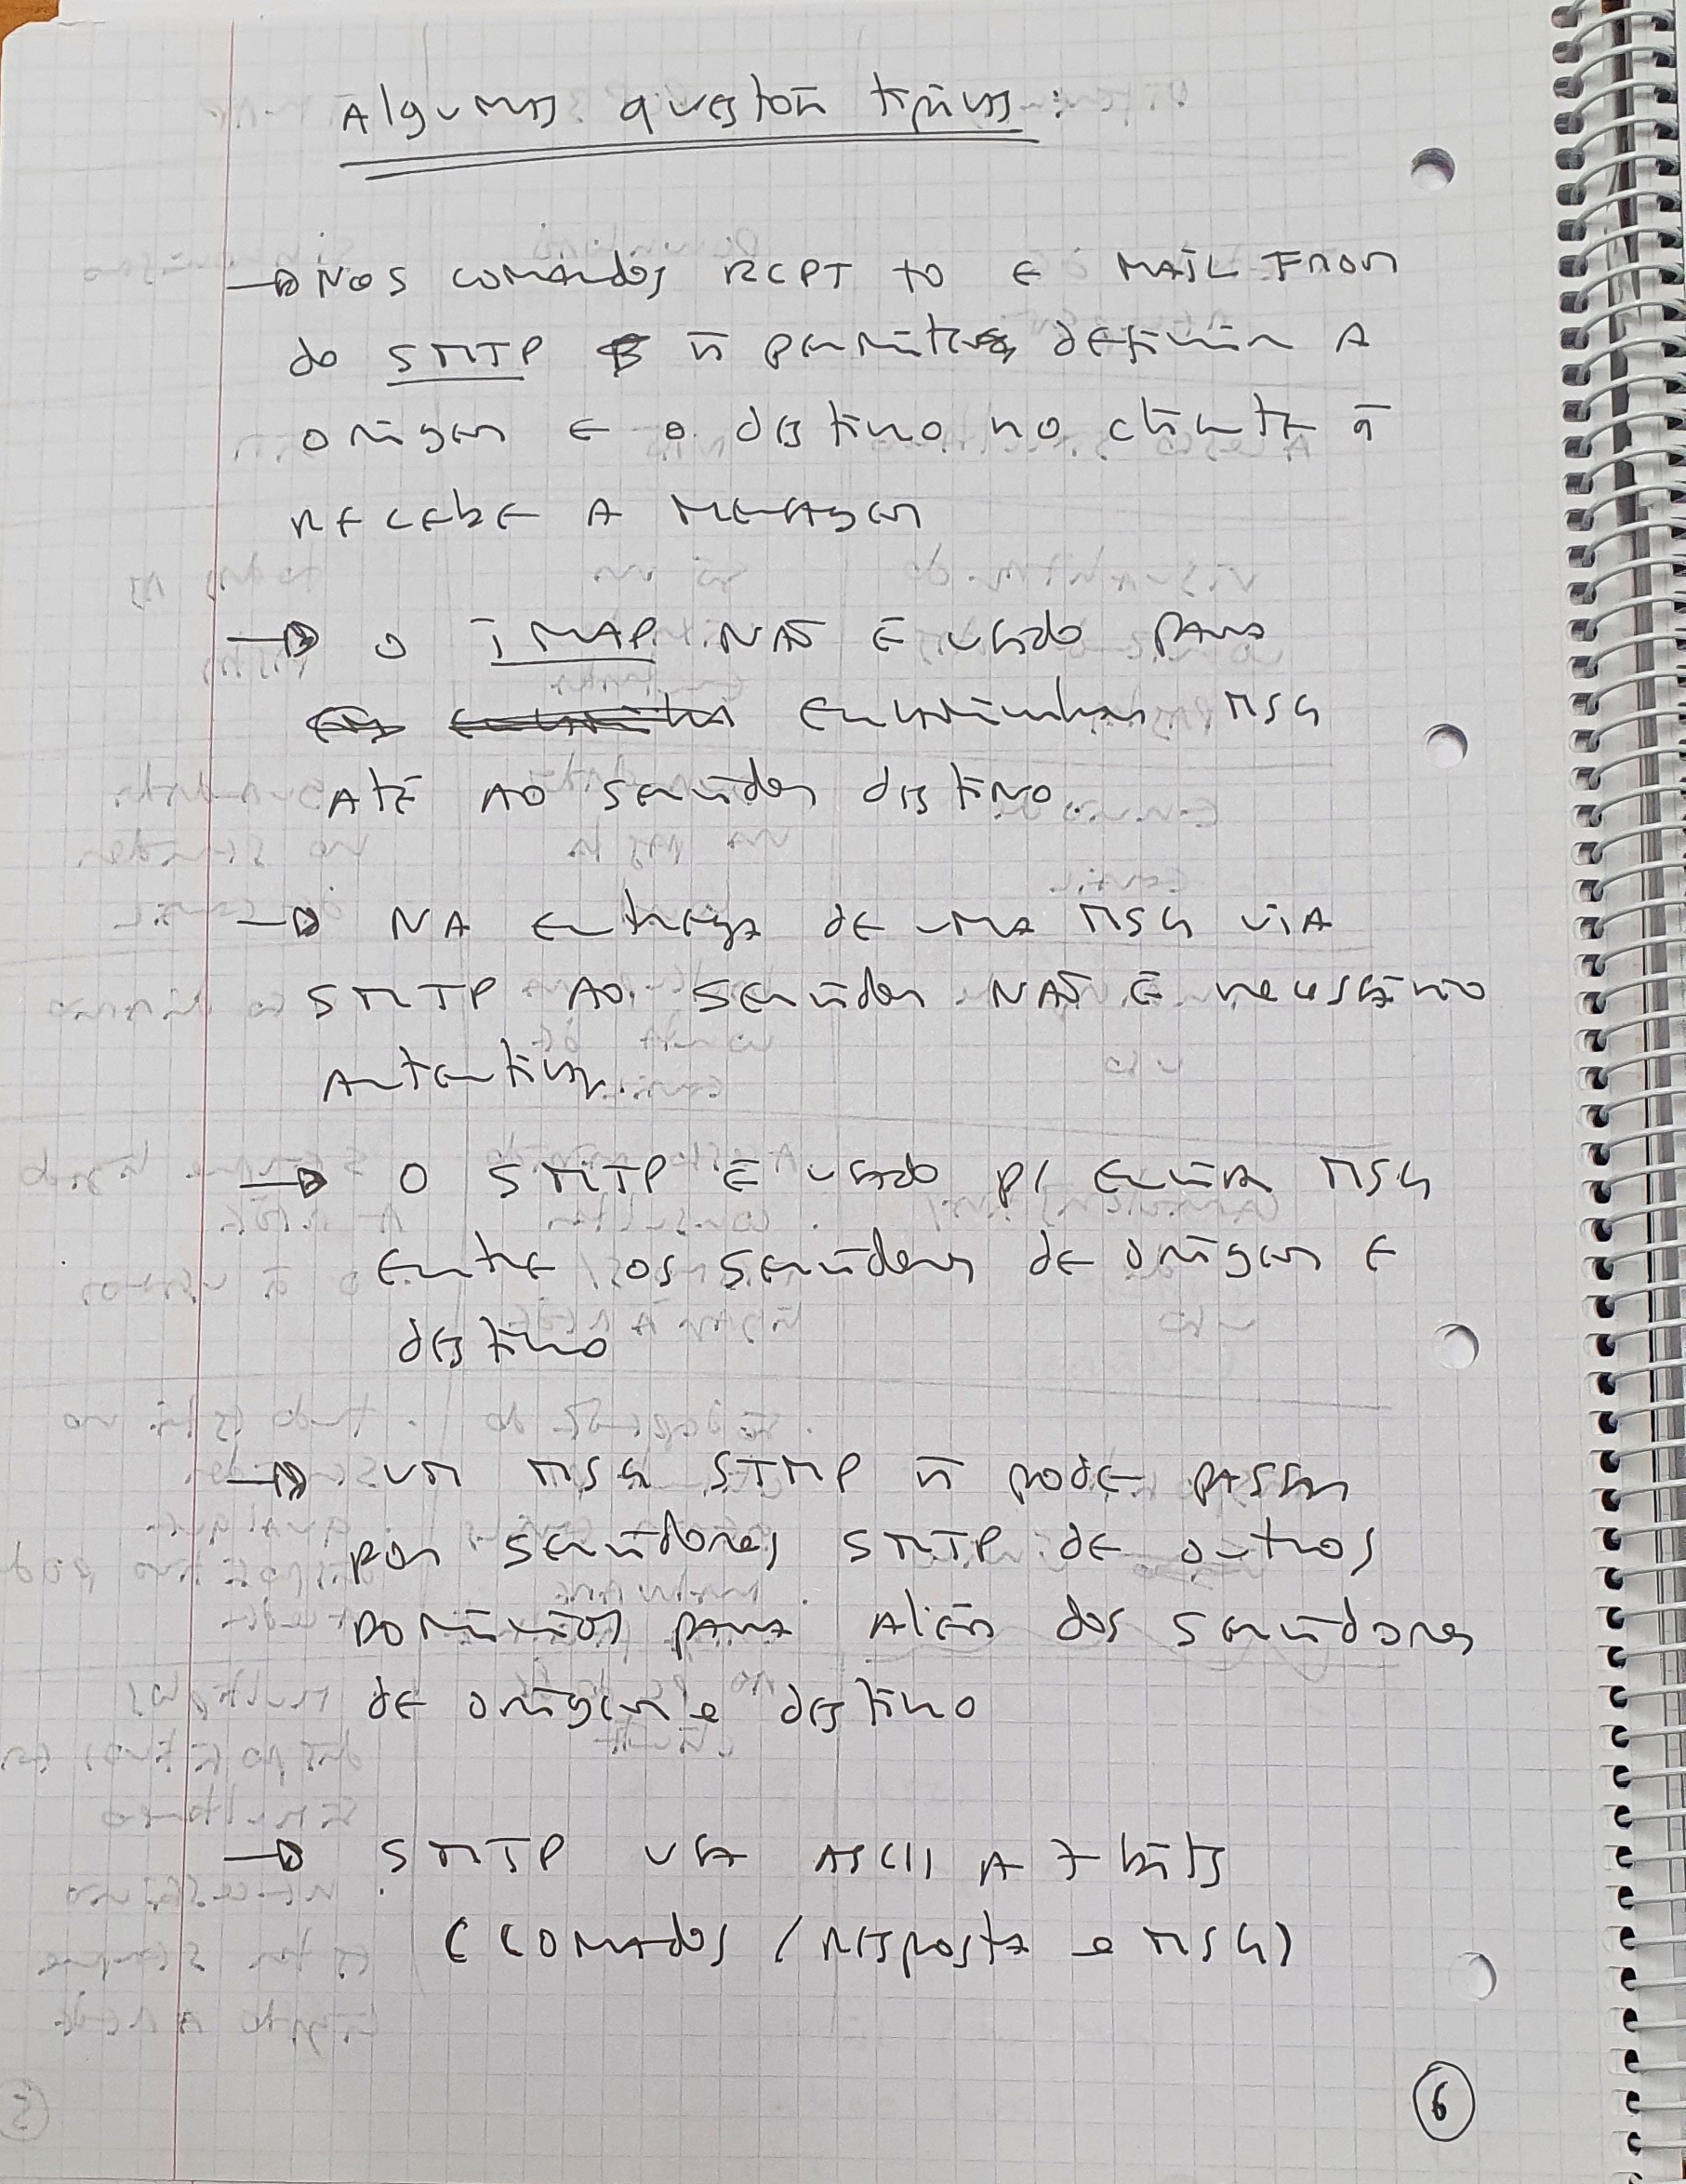 Algumas questões típicas:
→ Nos comandos RCPT to e MAIL From
do SMTP ñ permitem definir a
origem e o destino no cliente q̃
recebe a mensagem
→ O IMAP NÃO é usado para
encaminhar MSG
até ao servidor destino.
→ NA entrega de uma MSG via
SMTP ao servidor NÃO é necessário
autenticar.
→ O SMTP é usado p/ enviar MSG
entre os servidores de origem e
destino
→ um MSG STMP ñ pode passar
por servidores SMTP de outros
domínios para além dos servidores
de origem e destino
→ SMTP usa ASCII A 7 bits
(comados / resposta e MSG)
6